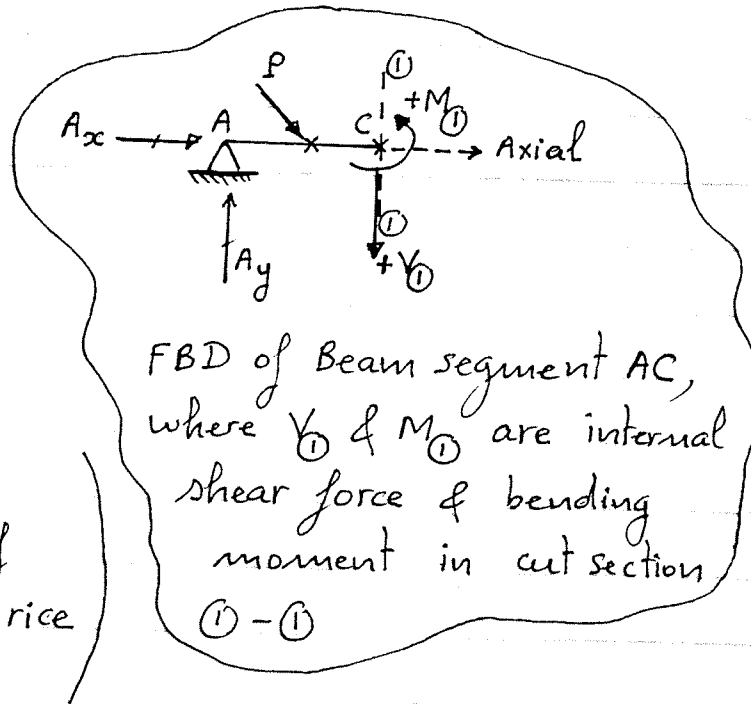 P
①
+M①
A_x
A
C
Axial
①
A_y
+V①
FBD of Beam segment AC,
where V① & M① are internal
shear force & bending
moment in cut section
①-①
f
rice